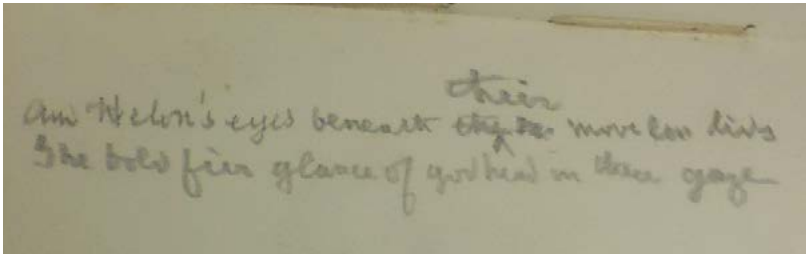 And Helen's eyes beneath their moveless lids
The bold fier glance of godhead in their gaze